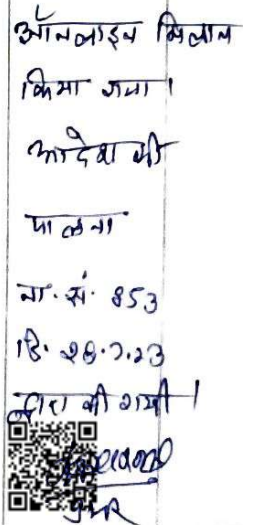 ऑनलाइन मिलान
किया गया।
आदेश की
पालना
ना. सं. 853
दि. 28.7.23
द्वारा की गयी।